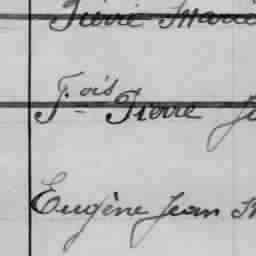 Pierre Marie
F.ois Pierre
Eugène Jean